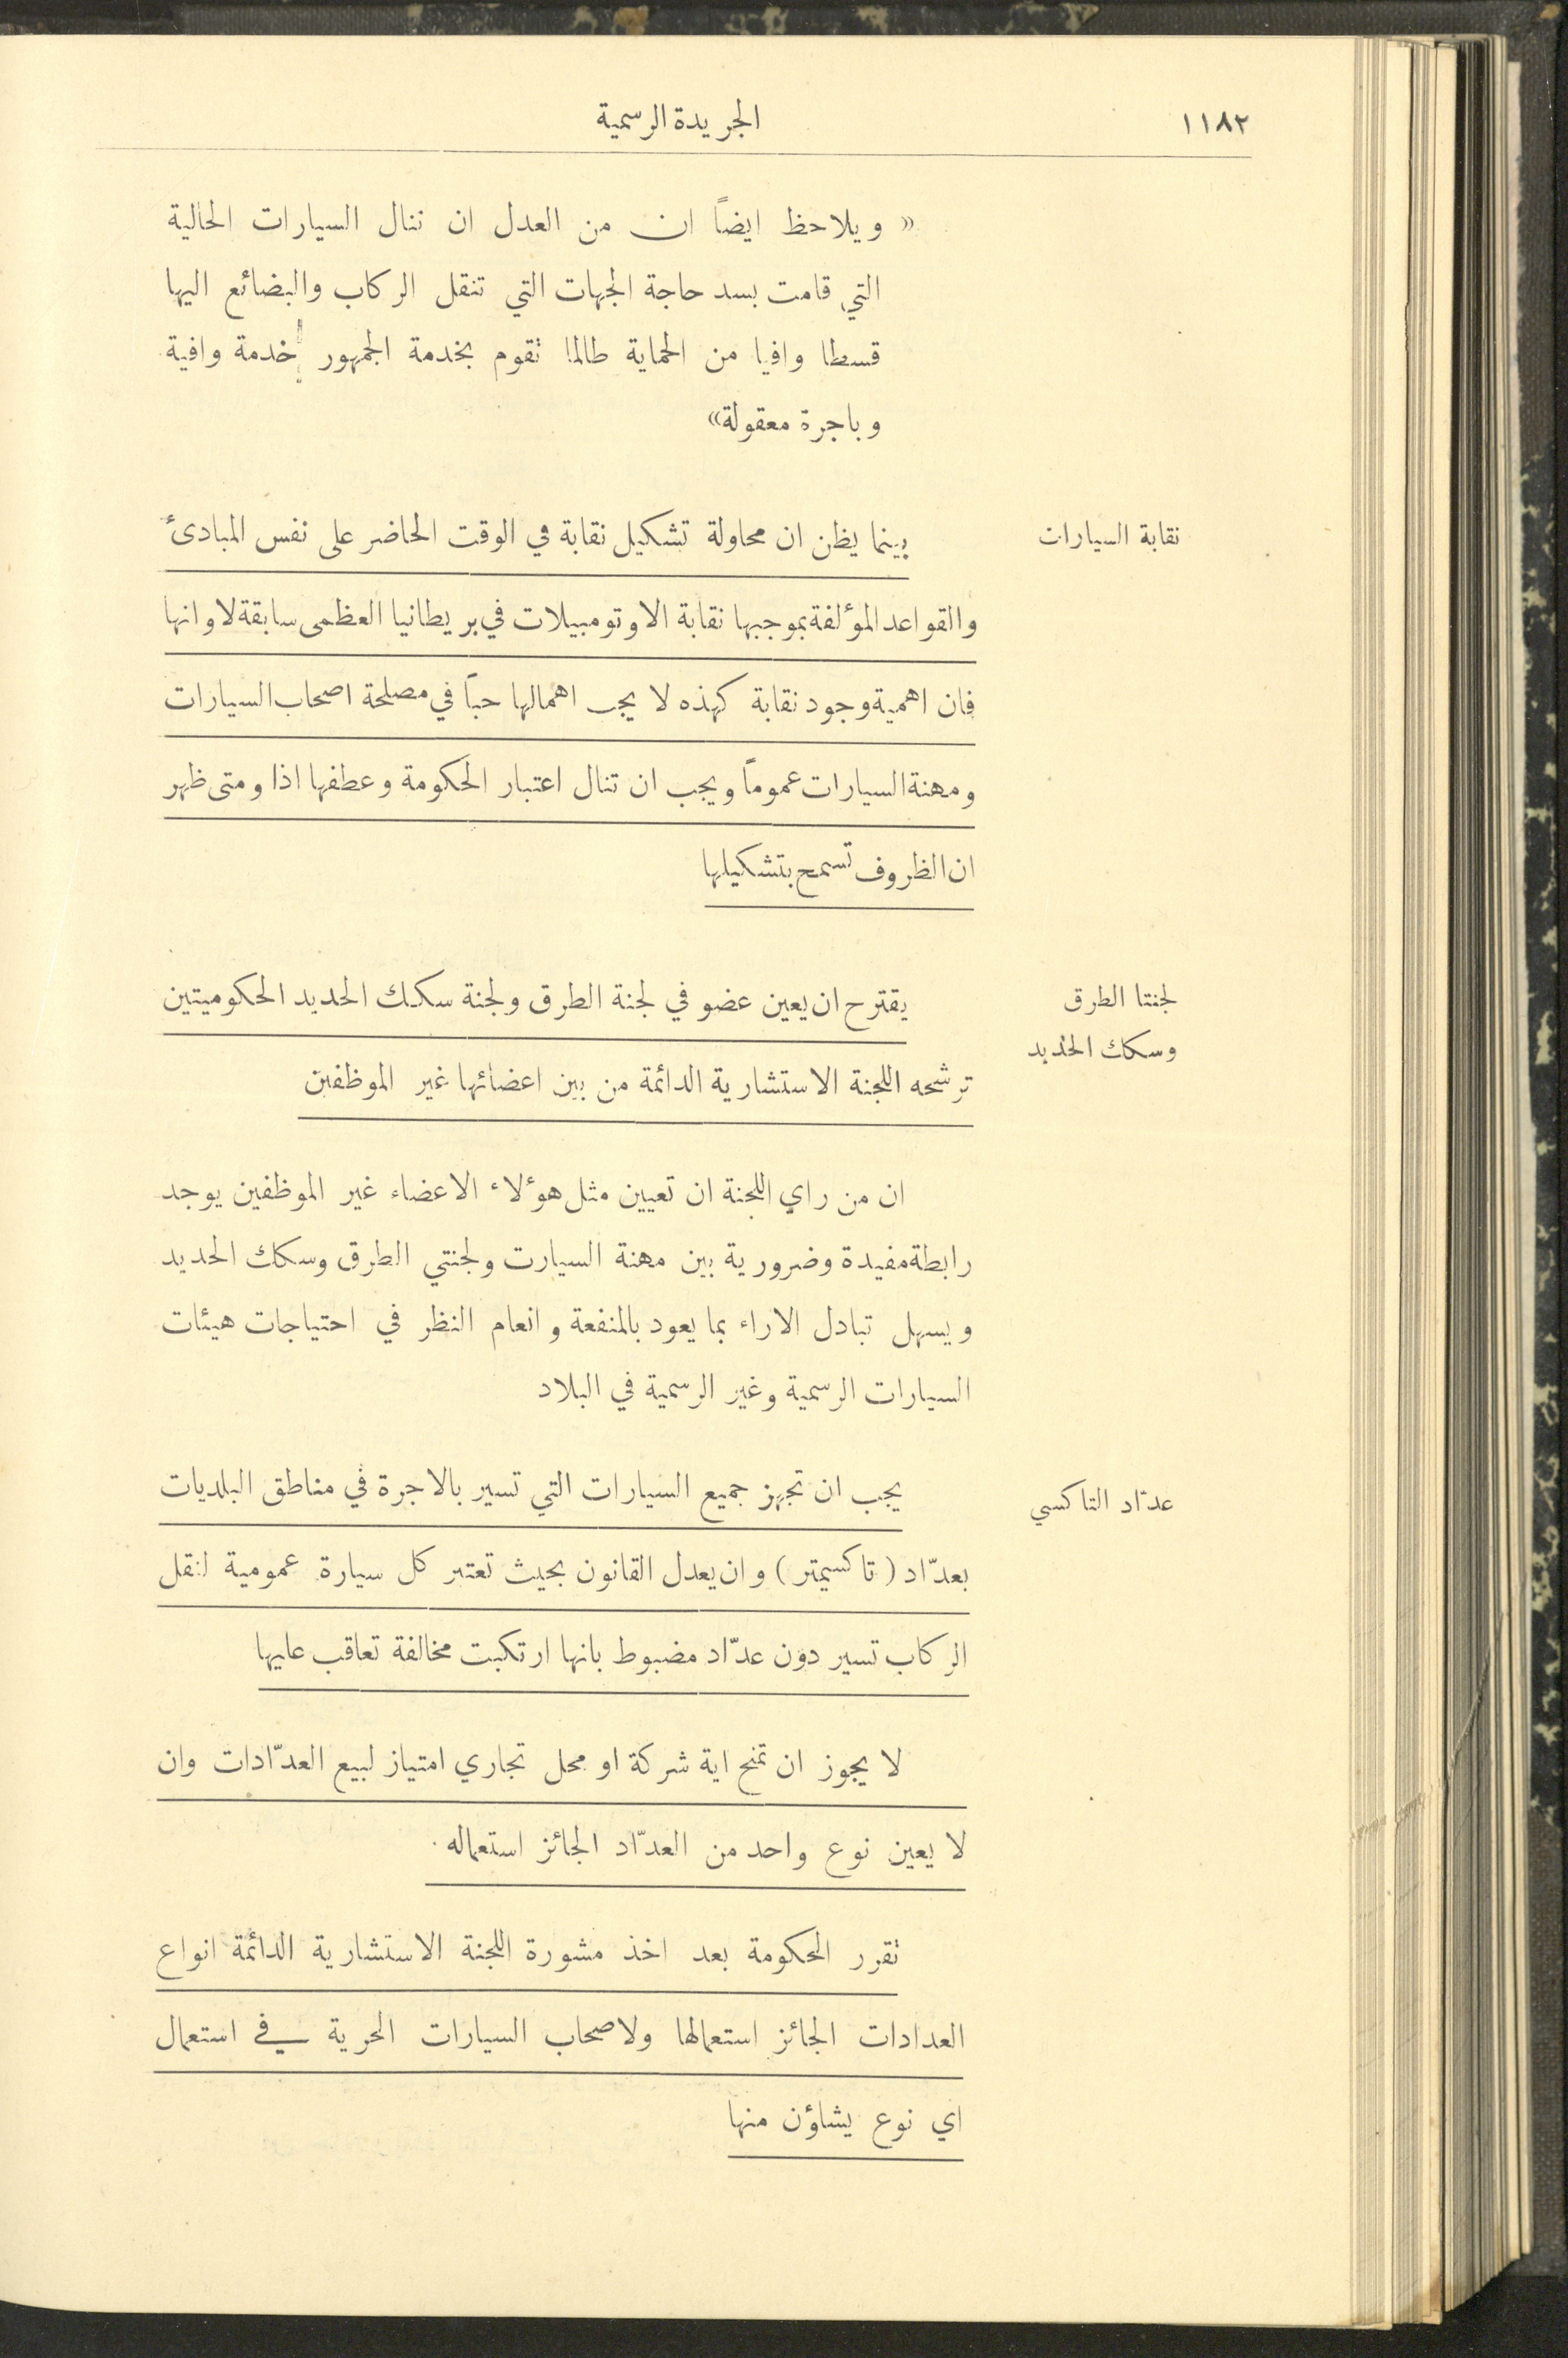 ١١٨٢
الجريدة الرسمية
« ويلاحظ ايضاً ان من العدل ان ننال السيارات الحالية
التي قامت بسد حاجة الجهات التي تنقل الركاب والبضائع اليها
قسطا وافيا من الحماية طالما تقوم بخدمة الجمهور خدمة وافية
وباجرة معقولة»
نقابة السيارات
بينما يظن ان محاولة تشكيل نقابة في الوقت الحاضر على نفس المبادئ
والقواعد المؤلفة بموجبها نقابة الاوتومبيلات في بريطانيا العظمى سابقة لاوانها
فان اهمية وجود نقابة كهذه لا يجب اهمالها حباً في مصلحة اصحاب السيارات
ومهنة السيارات عموماً ويجب ان تنال اعتبار الحكومة وعطفها اذا ومتى ظهر
ان الظروف تسمح بتشكيلها
لجنتا الطرق
وسكك الحديد
يقترح ان يعين عضو في لجنة الطرق ولجنة سكك الحديد الحكوميتين
ترشحه اللجنة الاستشارية الدائمة من بين اعضائها غير الموظفين
ان من راي اللجنة ان تعيين مثل هؤلاء الاعضاء غير الموظفين يوجد
رابطة مفيدة وضرورية بين مهنة السيارت ولجنتي الطرق وسكك الحديد
ويسهل تبادل الاراء بما يعود بالمنفعة وانعام النظر في احتياجات هيئات
السيارات الرسمية وغير الرسمية في البلاد
عدّاد التاكسي
يجب ان تجهز جميع السيارات التي تسير بالاجرة في مناطق البلديات
بعدّاد (تاكسيمتر) وان يعدل القانون بحيث تعتبر كل سيارة عمومية لنقل
الركاب تسير دون عدّاد مضبوط بانها ارتكبت مخالفة تعاقب عليها
لا يجوز ان تمنح اية شركة او محل تجاري امتياز لبيع العدّادات وان
لا يعين نوع واحد من العدّاد الجائز استعماله .
تقرر الحكومة بعد اخذ مشورة اللجنة الاستشارية الدائمة انواع
العدادات الجائز استعمالها ولاصحاب السيارات الحرية في استعمال
اي نوع يشاؤن منها